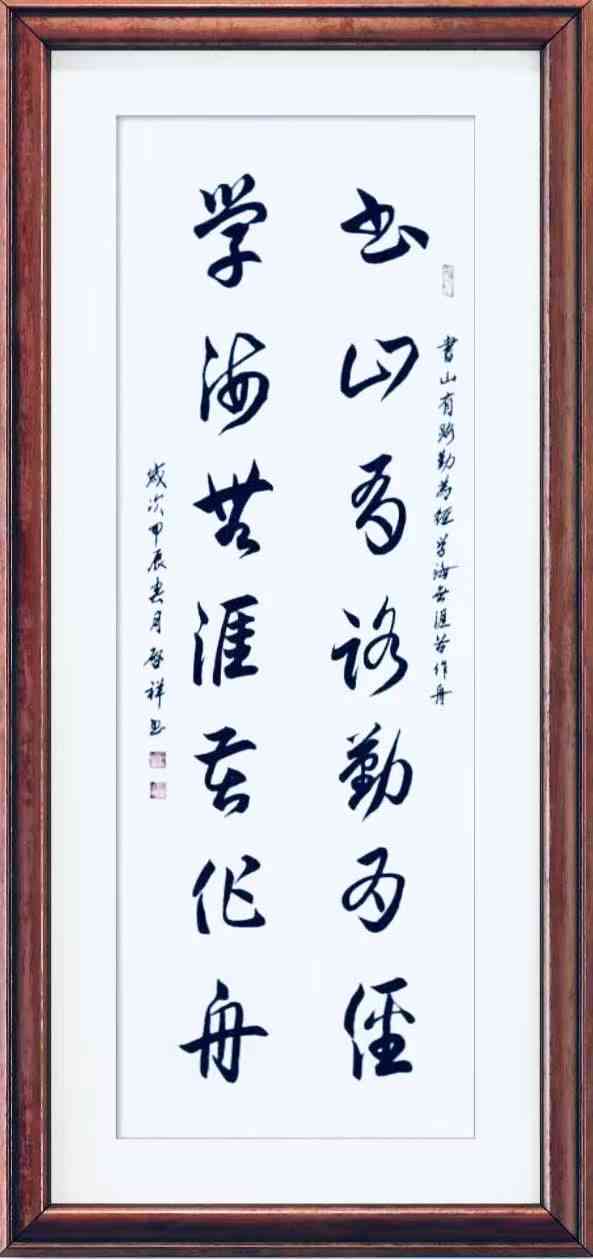 書山有路勤為徑学海无涯苦作舟
书山有路勤为徑
学海無涯苦作舟
歲次甲辰春月啓祥书